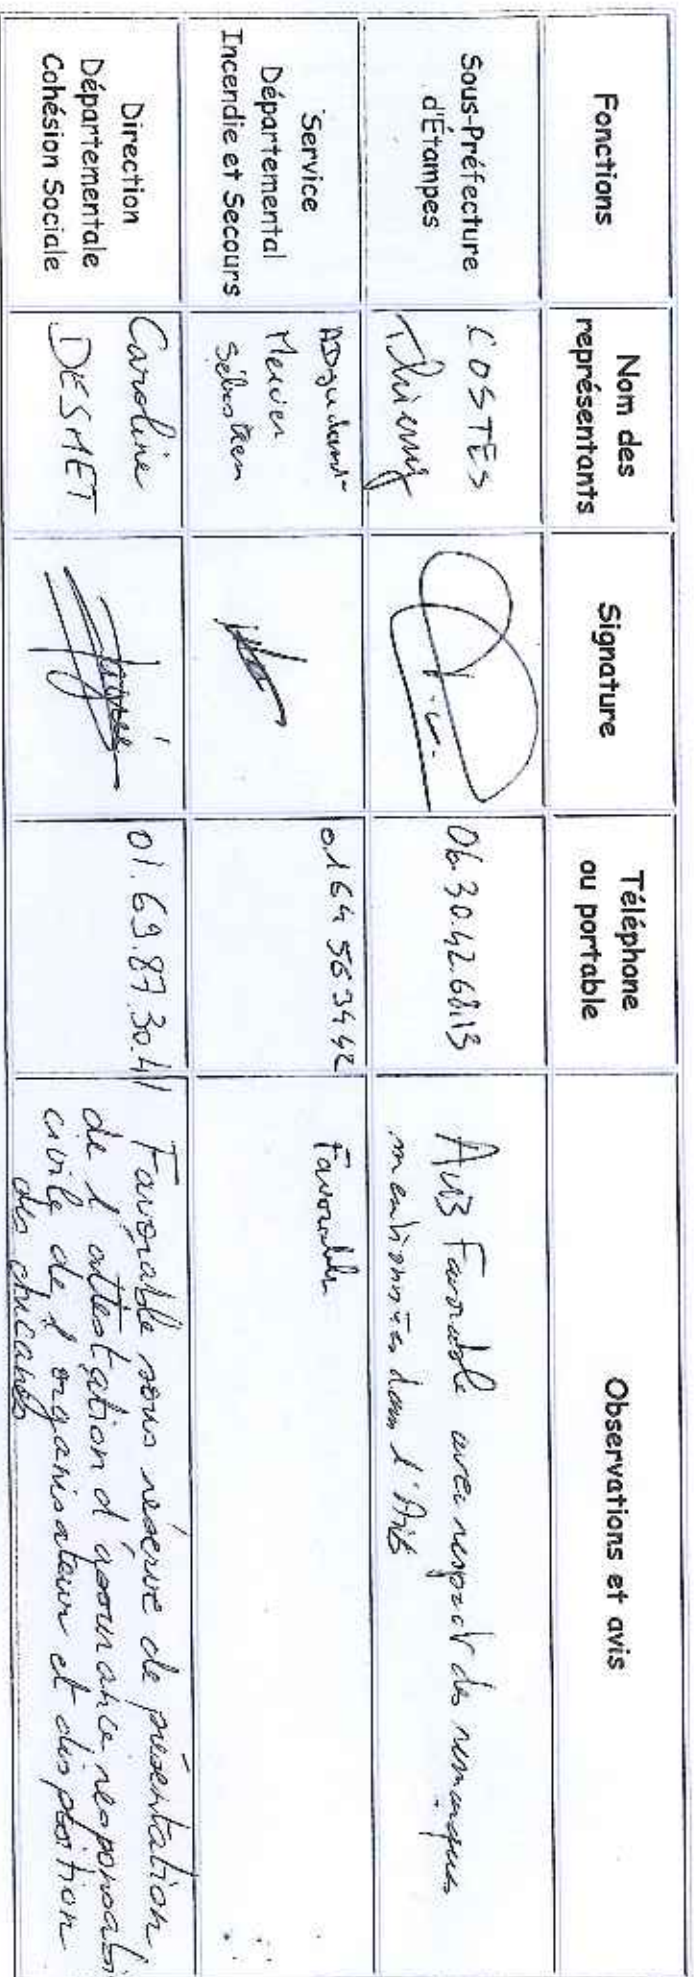 Fonctions
Nom des
représentants
Signature
Téléphone
ou portable
Observations et avis
Sous-Préfecture
d'Étampes
COSTES
Thierry
06.30.42.68.13
Avis Favorable avec respect des remarques
mentionnées dans l'Avis
Service
Départemental
Incendie et Secours
ADjudant
Mercier
Sébastien
01 64 56 34 42
Favorable
Direction
Départementale
Cohésion Sociale
Caroline
DESMET
01.69.87.30.41
Favorable sous réserve de présentation
de l'attestation d'assurance responsabi
civile de l'organisateur et disposition
des chicanes